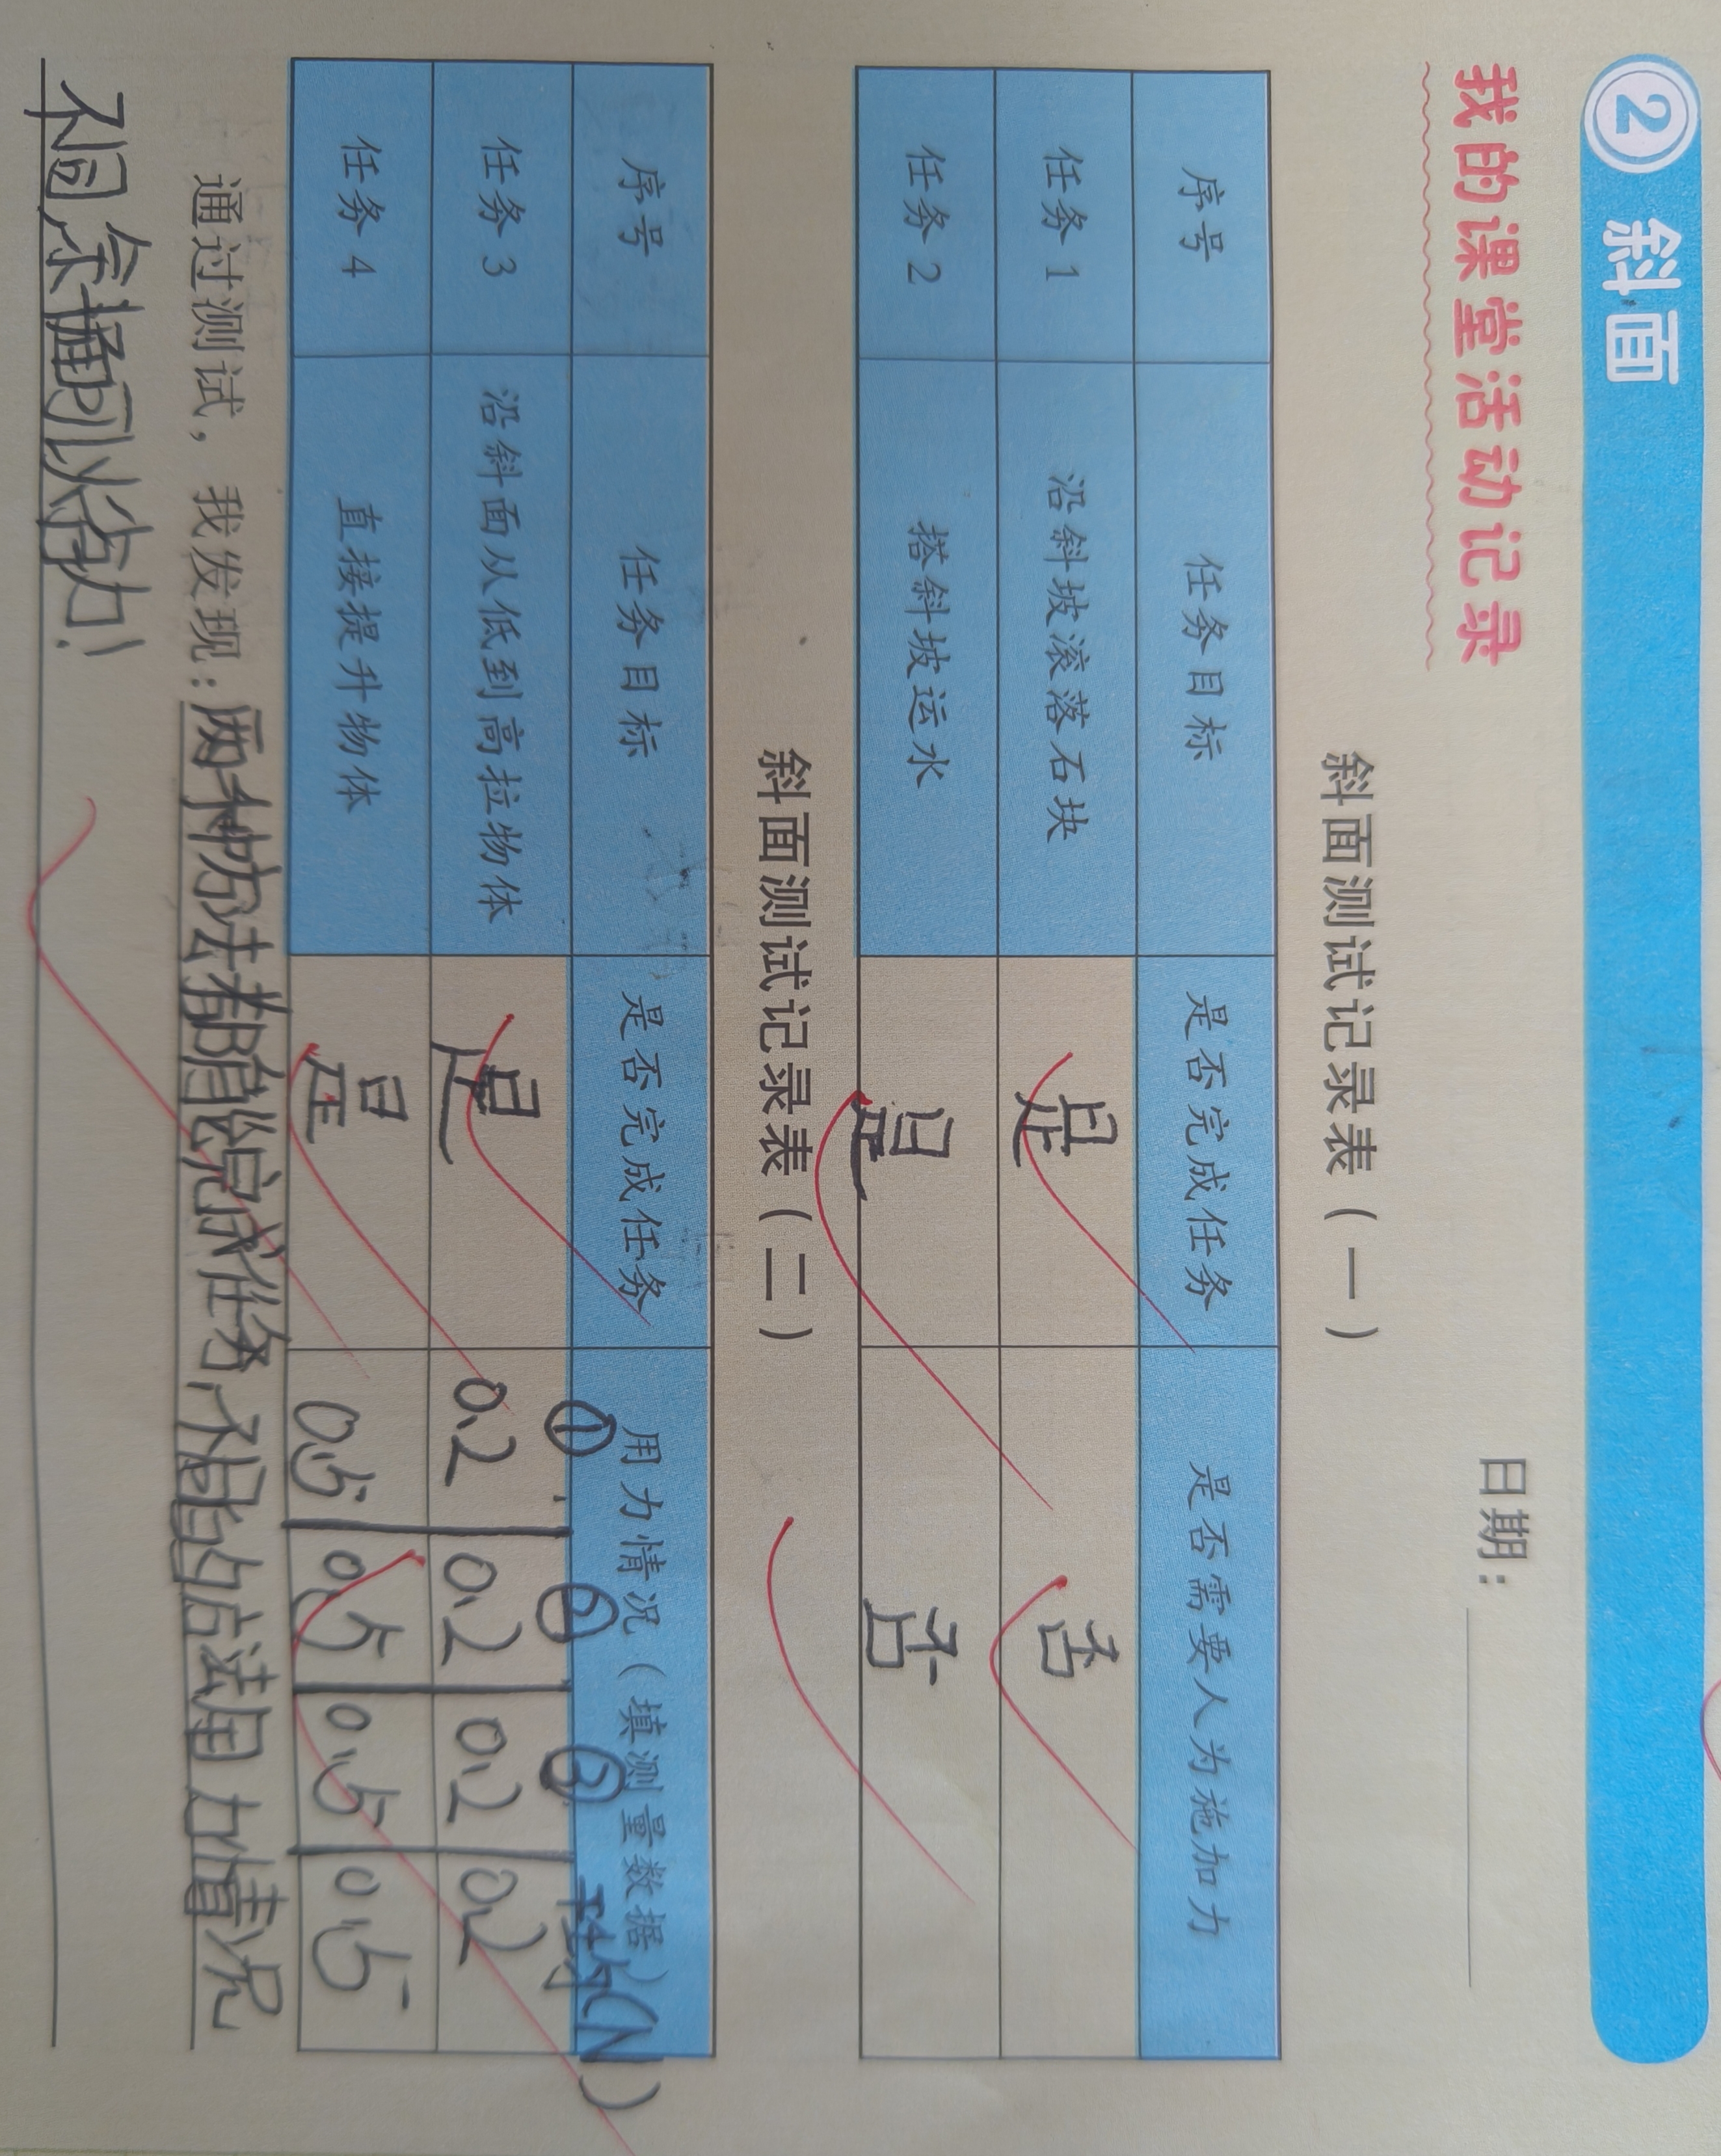 2 斜面
我的课堂活动记录
日期：
斜面测试记录表（一）
序号 任务目标 是否完成任务 是否需要人为施加力
任务1 沿斜坡滚落石块 是 否
任务2 搭斜坡运水 是 否
斜面测试记录表（二）
序号 任务目标 是否完成任务 用力情况（填测量数据）
① ② ③ 平均(N)
任务3 沿斜面从低到高拉物体 是 0.2 0.2 0.2 0.2
任务4 直接提升物体 是 0.5 0.5 0.5 0.5
通过测试，我发现：两种方法都能完成任务，不同的方法用力情况
不同，斜面可以省力！